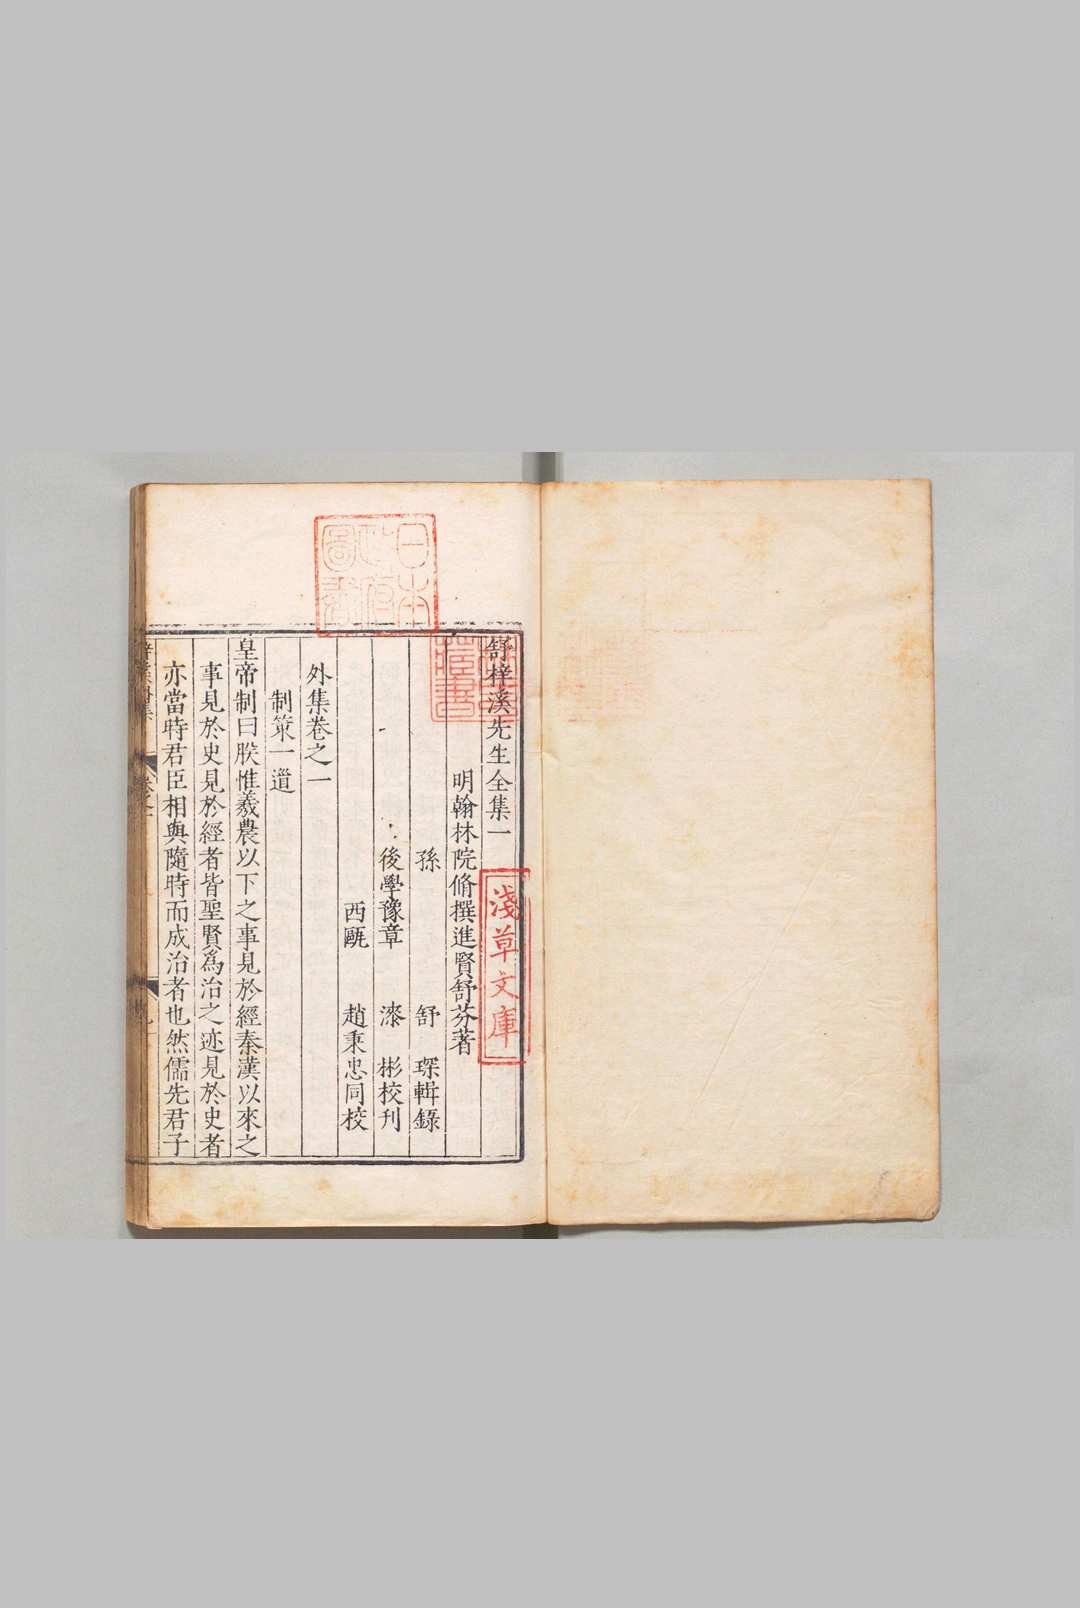 舒梓溪先生全集一
明翰林院脩撰進賢舒芬著
孫 舒 琛輯錄
後學豫章 漆 彬校刊
西甌 趙秉忠同校
外集卷之一
制策一道
皇帝制曰朕惟羲農以下之事見於經秦漢以來之
事見於史見於經者皆聖賢爲治之迹見於史者
亦當時君臣相與隨時而成治者也然儒先君子
日本政府圖書
藏書
淺草文庫